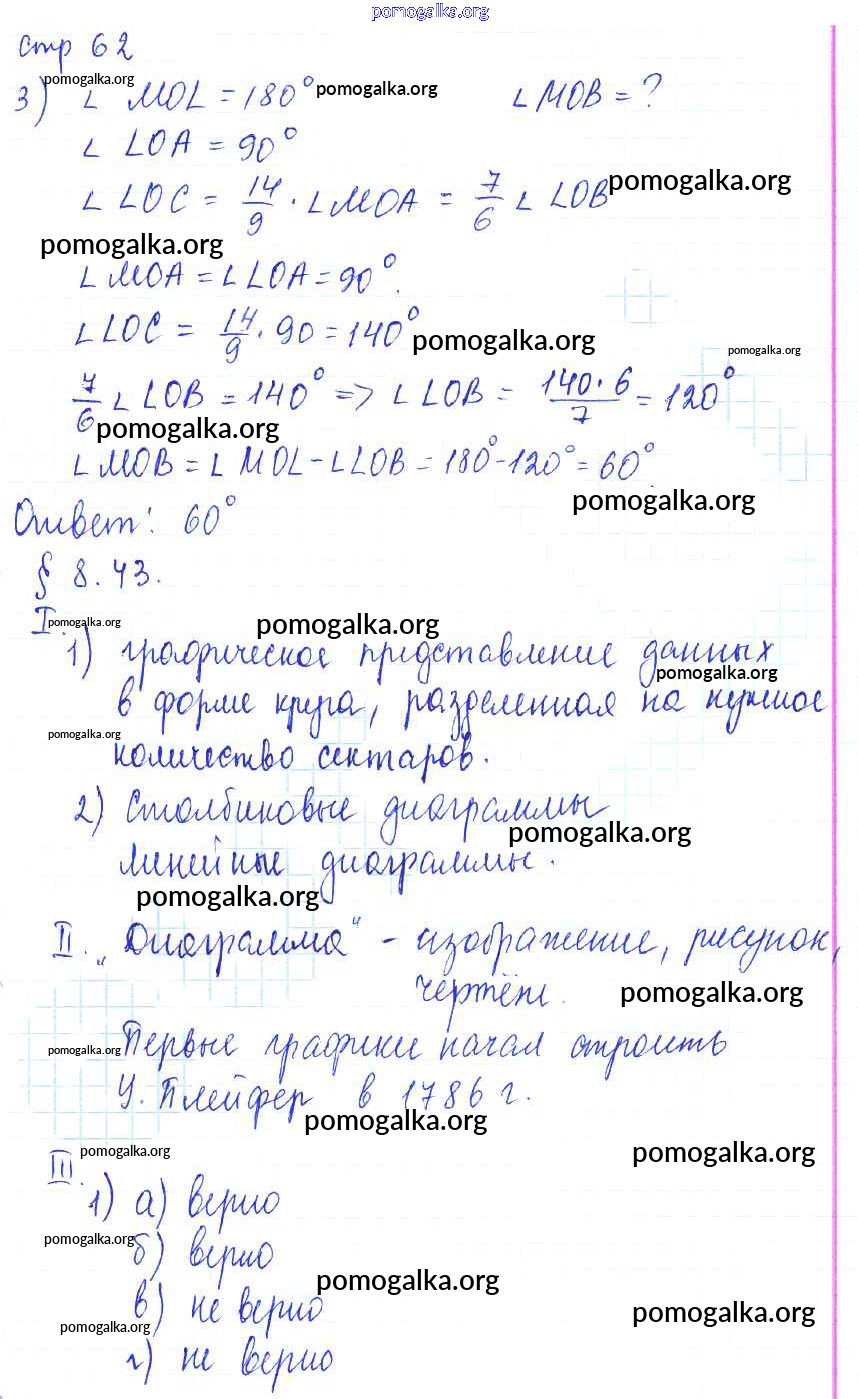 pomogalka.org
Стр 62
pomogalka.org
3) ∠ MOL = 180° pomogalka.org ∠ MOB = ?
∠ LOA = 90°
∠ LOC = 14/9 · ∠ MOA = 7/6 ∠ LOB pomogalka.org
pomogalka.org
∠ MOA = ∠ LOA = 90°.
∠ LOC = 14/9 · 90 = 140° pomogalka.org
pomogalka.org
7/6 ∠ LOB = 140° => ∠ LOB = 140·6/7 = 120°
pomogalka.org
∠ MOB = ∠ MOL - ∠ LOB = 180° - 120° = 60°
pomogalka.org
Ответ: 60°
§ 8.43.
I. pomogalka.org pomogalka.org
1) графическое представление данных
pomogalka.org
в форме круга, разделенная на нужное
pomogalka.org
количество сектаров.
2) Столбиковые диаграммы
pomogalka.org
линейные диаграммы.
pomogalka.org
II. „Диаграмма" - изображение, рисунок,
чертёж. pomogalka.org
pomogalka.org Первые графики начал строить
У. Плейфер в 1786 г.
pomogalka.org
pomogalka.org pomogalka.org
III.
1) а) верно
pomogalka.org
б) верно
pomogalka.org
в) не верно
pomogalka.org pomogalka.org
г) не верно